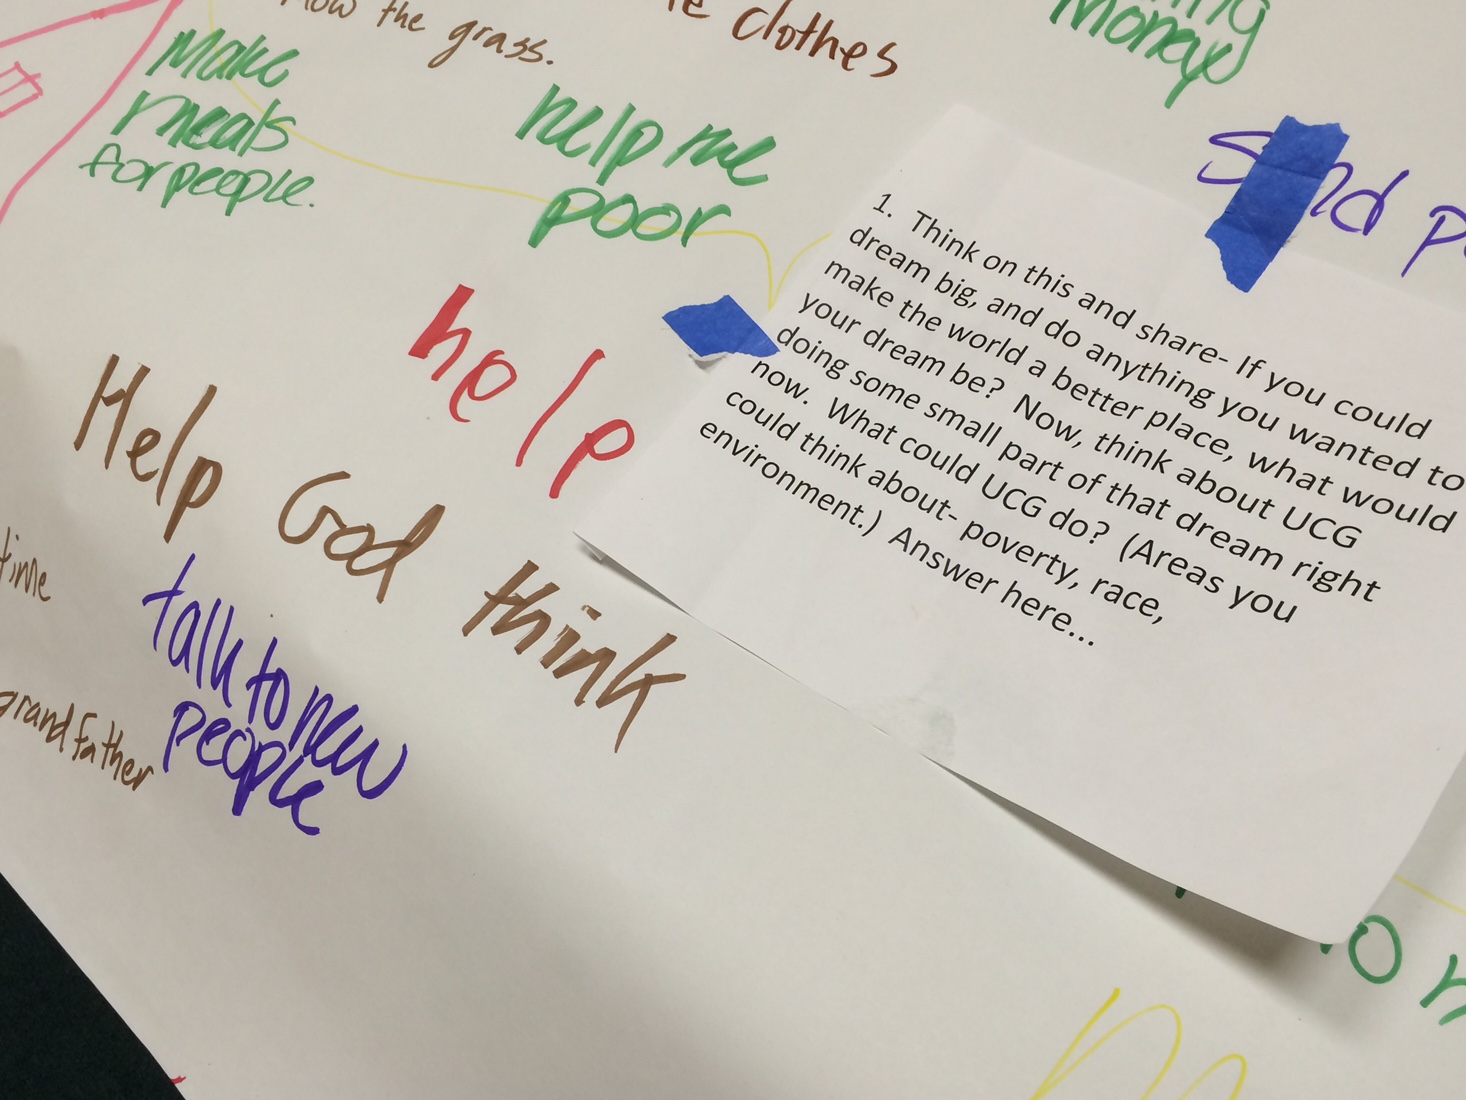 the grass.
clothes
Money
Make
meals
for people.
help the
poor
help
Help God think
time
talk to new
people
grandfather
1. Think on this and share- If you could
dream big, and do anything you wanted to
make the world a better place, what would
your dream be? Now, think about UCG
doing some small part of that dream right
now. What could UCG do? (Areas you
could think about- poverty, race,
environment.) Answer here...